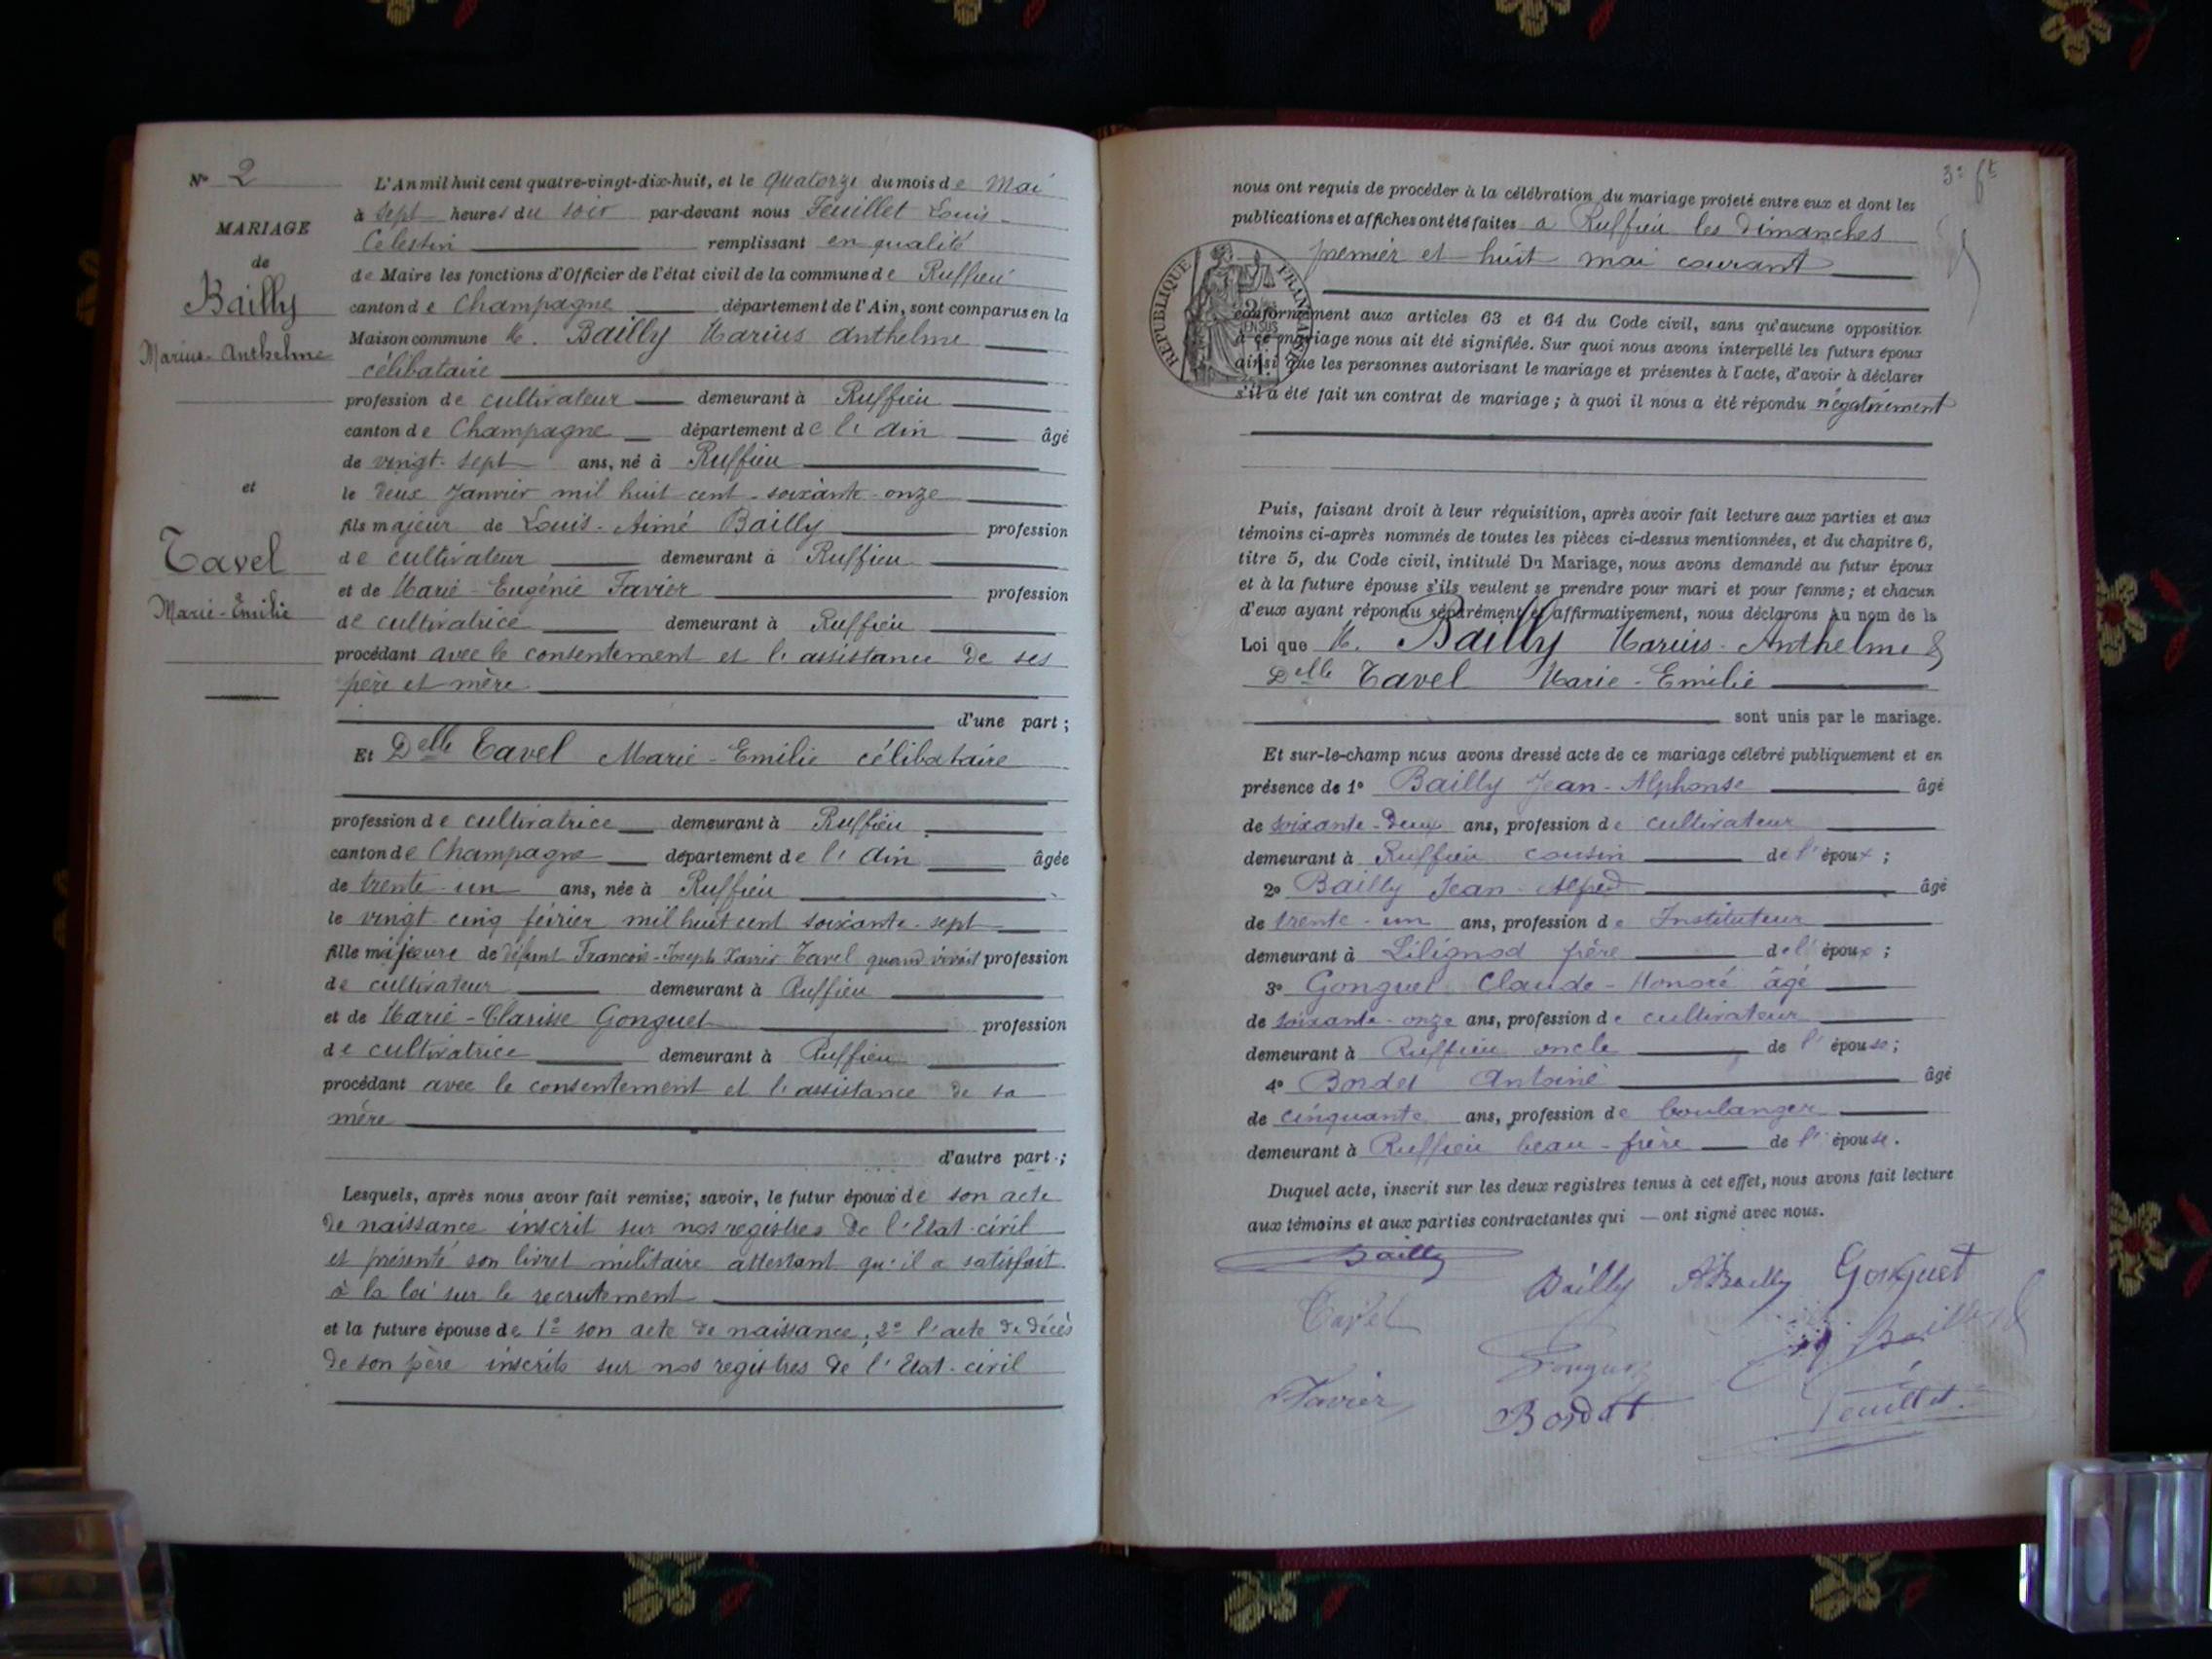 N° 2
MARIAGE
de
Bailly
Marius-Anthelme
et
Tavel
Marie-Emilie
L'An mil huit cent quatre-vingt-dix-huit, et le quatorze du mois de Mai
à sept heures du soir par-devant nous Feuillet Louis-
Célestin remplissant en qualité
de Maire les fonctions d'Officier de l'état civil de la commune de Ruffieu
canton de Champagne département de l'Ain, sont comparus en la
Maison commune M. Bailly Marius Anthelme
célibataire
profession de cultivateur demeurant à Ruffieu
canton de Champagne département de l'Ain âgé
de vingt-sept ans, né à Ruffieu
le deux Janvier mil huit cent-soixante-onze
fils majeur de Louis-Aimé Bailly profession
de cultivateur demeurant à Ruffieu
et de Marie-Eugénie Favier profession
de cultivatrice demeurant à Ruffieu
procédant avec le consentement et l'assistance de ses
père et mère
d'une part;
Et Delle Tavel Marie-Emilie célibataire
profession de cultivatrice demeurant à Ruffieu
canton de Champagne département de l'Ain âgée
de trente-un ans, née à Ruffieu
le vingt cinq février mil huit cent soixante-sept
fille majeure de défunt François-Joseph Xavier Tavel quand vivait profession
de cultivateur demeurant à Ruffieu
et de Marie-Clarisse Gonguet profession
de cultivatrice demeurant à Ruffieu
procédant avec le consentement et l'assistance de sa
mère
d'autre part;
Lesquels, après nous avoir fait remise; savoir, le futur époux de son acte
de naissance inscrit sur nos registres de l'Etat-civil
et présenté son livret militaire attestant qu'il a satisfait
à la loi sur le recrutement
et la future épouse de 1° son acte de naissance; 2° l'acte de décès
de son père inscrits sur nos registres de l'Etat-civil
3e ft
nous ont requis de procéder à la célébration du mariage projeté entre eux et dont les
publications et affiches ont été faites à Ruffieu les dimanches
premier et huit mai courant
RÉPUBLIQUE FRANÇAISE
conformément aux articles 63 et 64 du Code civil, sans qu'aucune opposition
à ce mariage nous ait été signifiée. Sur quoi nous avons interpellé les futurs époux
ainsi que les personnes autorisant le mariage et présentes à l'acte, d'avoir à déclarer
s'il a été fait un contrat de mariage; à quoi il nous a été répondu négativement
Puis, faisant droit à leur réquisition, après avoir fait lecture aux parties et aux
témoins ci-après nommés de toutes les pièces ci-dessus mentionnées, et du chapitre 6,
titre 5, du Code civil, intitulé Du Mariage, nous avons demandé au futur époux
et à la future épouse s'ils veulent se prendre pour mari et pour femme; et chacun
d'eux ayant répondu séparément et affirmativement, nous déclarons Au nom de la
Loi que M. Bailly Marius-Anthelme &
Delle Tavel Marie-Emilie
sont unis par le mariage.
Et sur-le-champ nous avons dressé acte de ce mariage célébré publiquement et en
présence de 1° Bailly Jean-Alphonse âgé
de soixante-deux ans, profession de cultivateur
demeurant à Ruffieu cousin de l'époux;
2° Bailly Jean-Alfred âgé
de trente-un ans, profession de Instituteur
demeurant à Lilignod frère de l'époux;
3° Gonguet Claude-Honoré âgé
de soixante-onze ans, profession de cultivateur
demeurant à Ruffieu oncle de l'épouse;
4° Bordet Antoine âgé
de cinquante ans, profession de boulanger
demeurant à Ruffieu beau-frère de l'épouse.
Duquel acte, inscrit sur les deux registres tenus à cet effet, nous avons fait lecture
aux témoins et aux parties contractantes qui — ont signé avec nous.
Bailly
Bailly ABailly Gonguet
Tavel
Bailly
Gonguet
Favier
Bordet
Feuillet